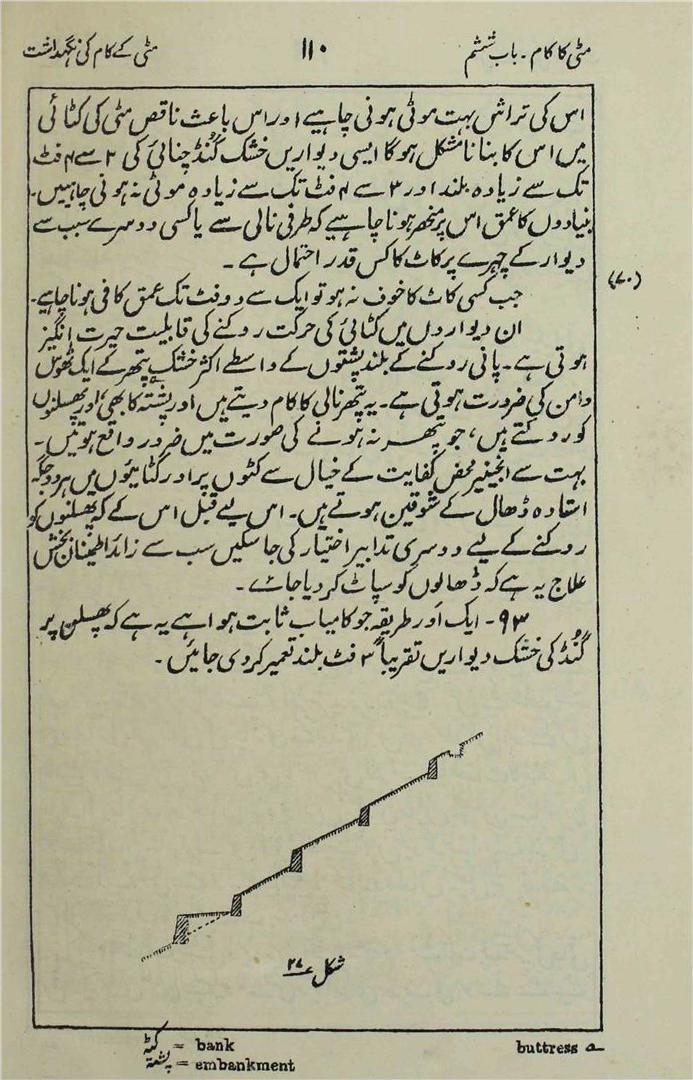 مٹی کا کام ۔ باب ششم
۱۱۰
مٹی کے کام کی نگہداشت
اس کی تراش بہت موٹی ہونی چاہیے اور اس باعث ناقص مٹی کی کٹائی
میں اس کا بنانا مشکل ہوگا ایسی دیواریں خشک گُنڈ چنائی کی ۲ سے ۴ فٹ
تک سے زیادہ بلند اور ۳ سے ۴ فٹ تک سے زیادہ موٹی نہ ہونی چاہییں۔
بنیادوں کا عمق اس پر منحصر ہونا چاہیے کہ طرفی نالی سے یا کسی دوسرے سبب سے
دیوار کے چہرے پر کاٹ کا کس قدر احتمال ہے ۔
(۷۰)
جب کسی کاٹ کا خوف نہ ہو تو ایک سے دو فٹ تک عمق کافی ہونا چاہیے۔
ان دیواروں میں کٹائی کی حرکت روکنے کی قابلیت حیرت انگیز
ہوتی ہے ۔ پانی روکنے کے بلند پشتوں کے واسطے اکثر خشک پتھر کے ایک ٹھوس
دامن کی ضرورت ہوتی ہے ۔ یہ پتھر نالی کا کام دیتے ہیں اور پشتہ کا بھی، اور پھسلنوں
کو روکتے ہیں، جو پتھر نہ ہونے کی صورت میں ضرور واقع ہوتیں ۔
بہت سے انجنیر محض کفایت کے خیال سے کٹوں پر اور کٹائیوں میں ہر دو جگہ
استادہ ڈھال کے شوقین ہوتے ہیں ۔ اس لیے قبل اس کے کہ پھسلنوں کو
روکنے کے لیے دوسری تدابیر اختیار کی جا سکیں سب سے زائد اطمینان بخش
علاج یہ ہے کہ ڈھالوں کو سپاٹ کر دیا جائے ۔
۹۳ ۔ ایک اور طریقہ جو کامیاب ثابت ہوا ہے یہ ہے کہ پھسلن پر
گُنڈ کی خشک دیواریں تقریباً ۳ فٹ بلند تعمیر کر دی جائیں ۔
شکل ۲۷
buttress a
کٹہ = bank
پشتہ = embankment